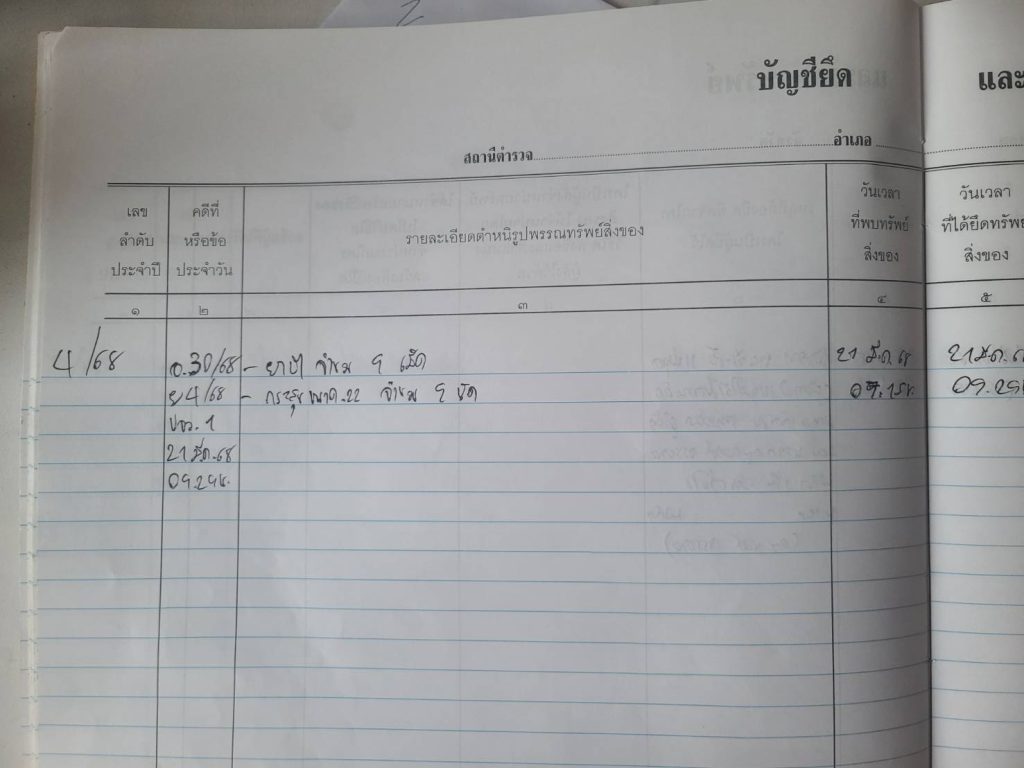 บัญชียึด และ
สถานีตำรวจ อำเภอ
เลข ลำดับ ประจำปี
คดีที่ หรือข้อ ประจำวัน
รายละเอียดตำหนิรูปพรรณทรัพย์สิ่งของ
วันเวลา ที่พบทรัพย์ สิ่งของ
วันเวลา ที่ได้ยึดทรัพย์ สิ่งของ
๑ ๒ ๓ ๔ ๕
4/68 อ.30/68 - ยาบ้า จำนวน 9 เม็ด 21 มี.ค. 68 21 มี.ค. 6
ย4/68 - กระสุน ขนาด .22 จำนวน 9 นัด 09.29
ปจว. 1
21 มี.ค. 68
09.29น.